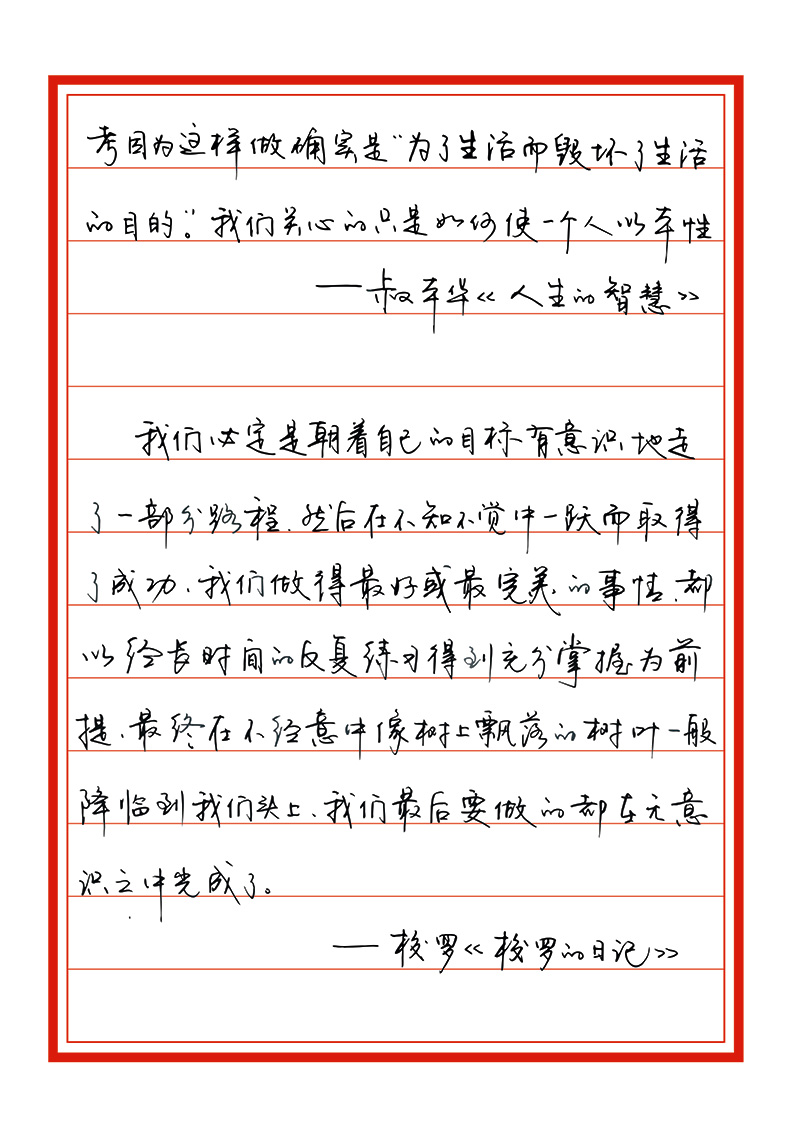 考因为这样做确实是“为了生活而毁坏了生活
的目的。”我们关心的只是如何使一个人以本性
——叔本华《人生的智慧》
我们必定是朝着自己的目标有意识地走
了一部分路程、然后在不知不觉中一跃而取得
了成功、我们做得最好或最完美的事情、都
以经长时间的反复练习得到充分掌握为前
提、最终在不经意中像树上飘落的树叶一般
降临到我们头上、我们最后要做的都在无意
识之中完成了。
——梭罗《梭罗的日记》